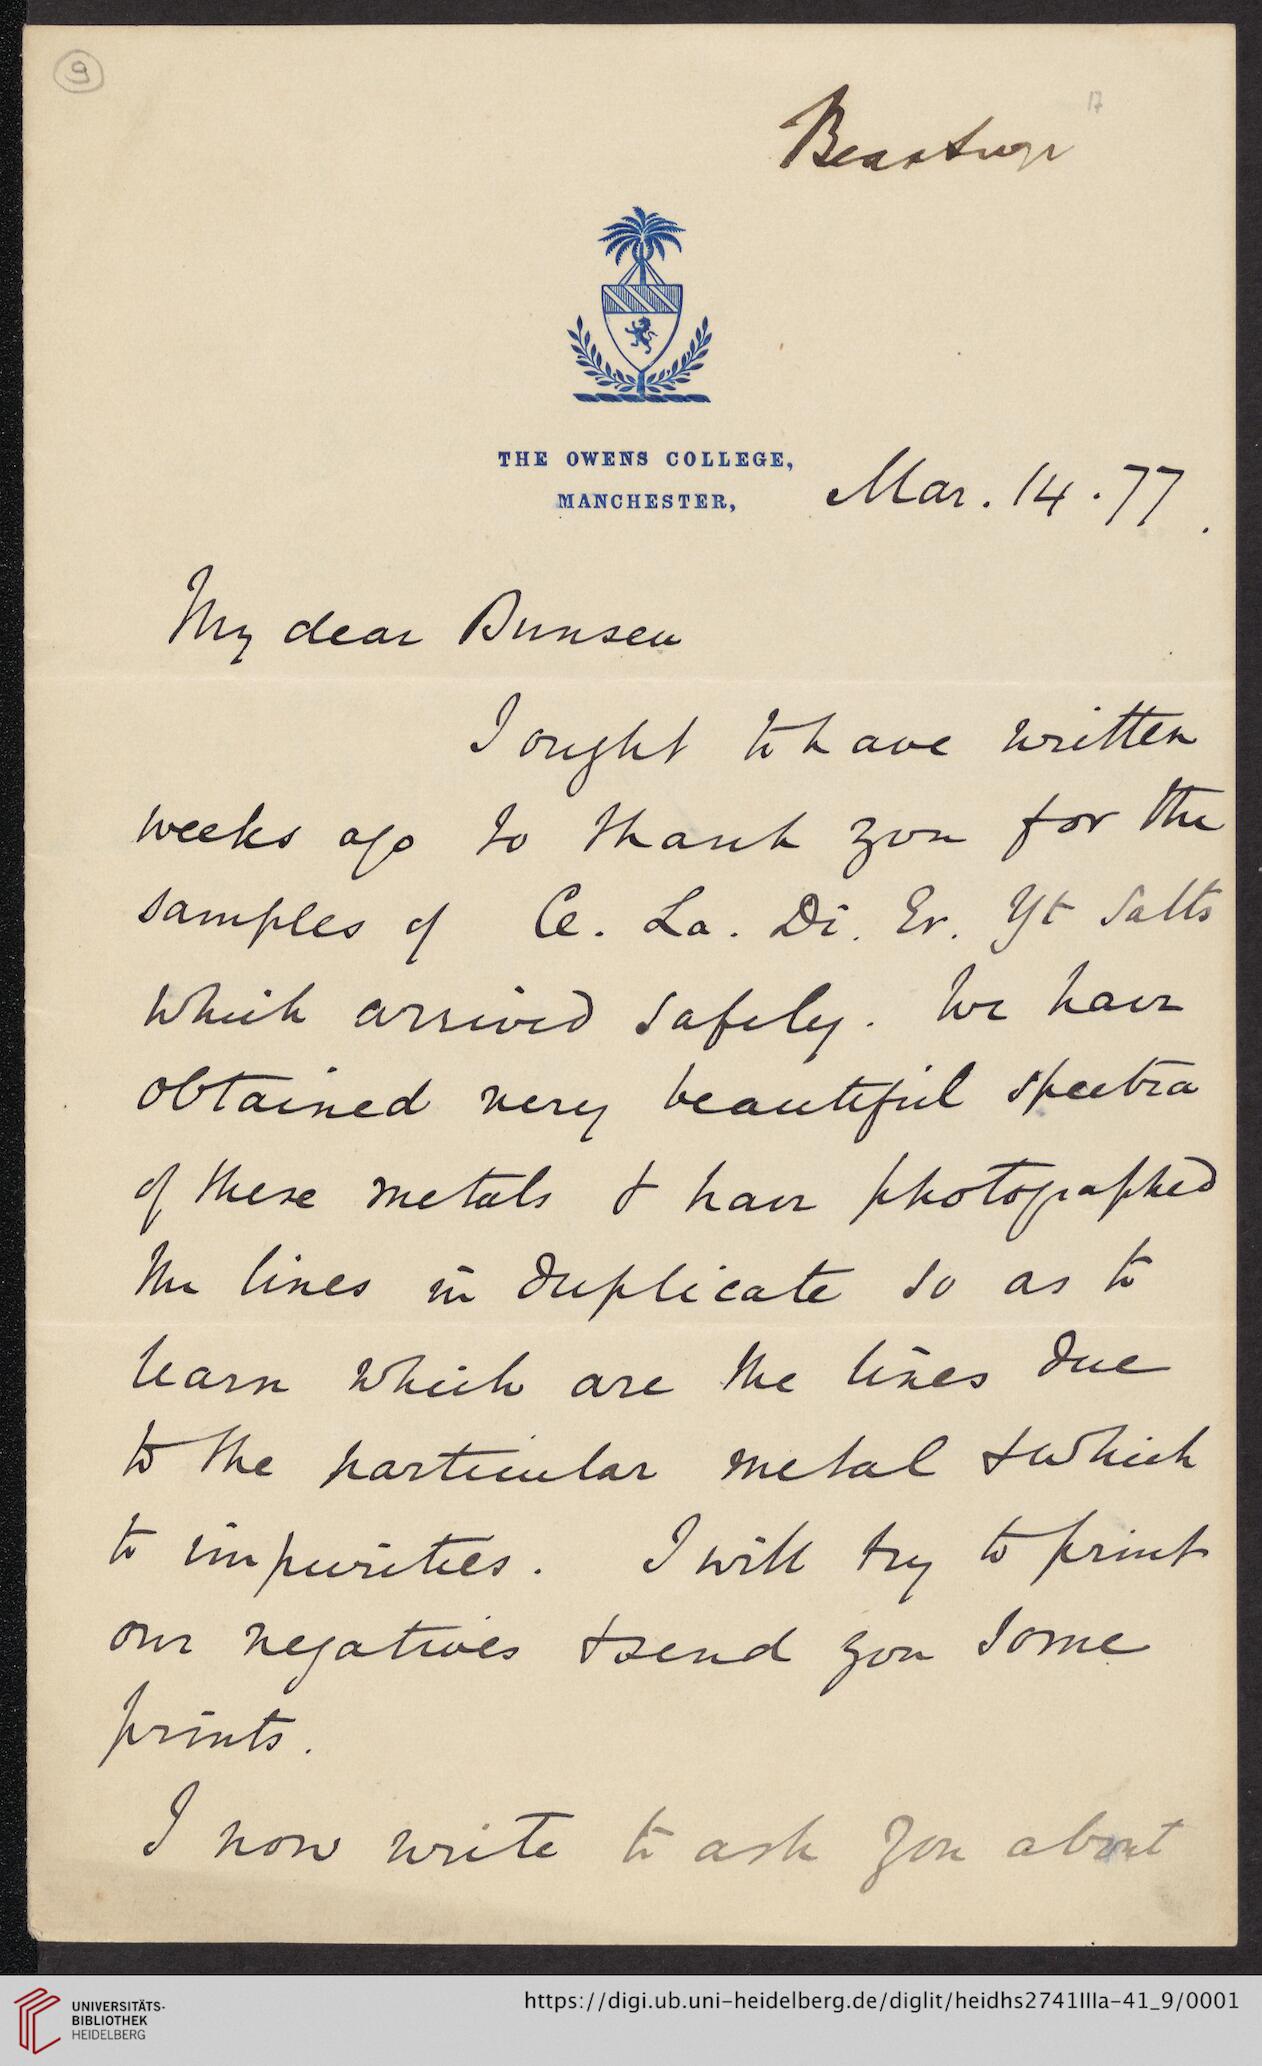 9
17
THE OWENS COLLEGE,
MANCHESTER,
Mar. 14. 77.
My dear Bunsen
I ought to have written
weeks ago to thank you for the
samples of Ce. La. Di. Er. Yt Salts
which arrived safely. We have
obtained very beautiful spectra
of these metals & have photographed
the lines in duplicate so as to
learn which are the lines due
to the particular metal & which
to impurities. I will try to print
our negatives & send you some
prints.
I now write to ask you about
UNIVERSITÄTS-
BIBLIOTHEK
HEIDELBERG
https://digi.ub.uni-heidelberg.de/diglit/heidhs2741IIIa-41_9/0001